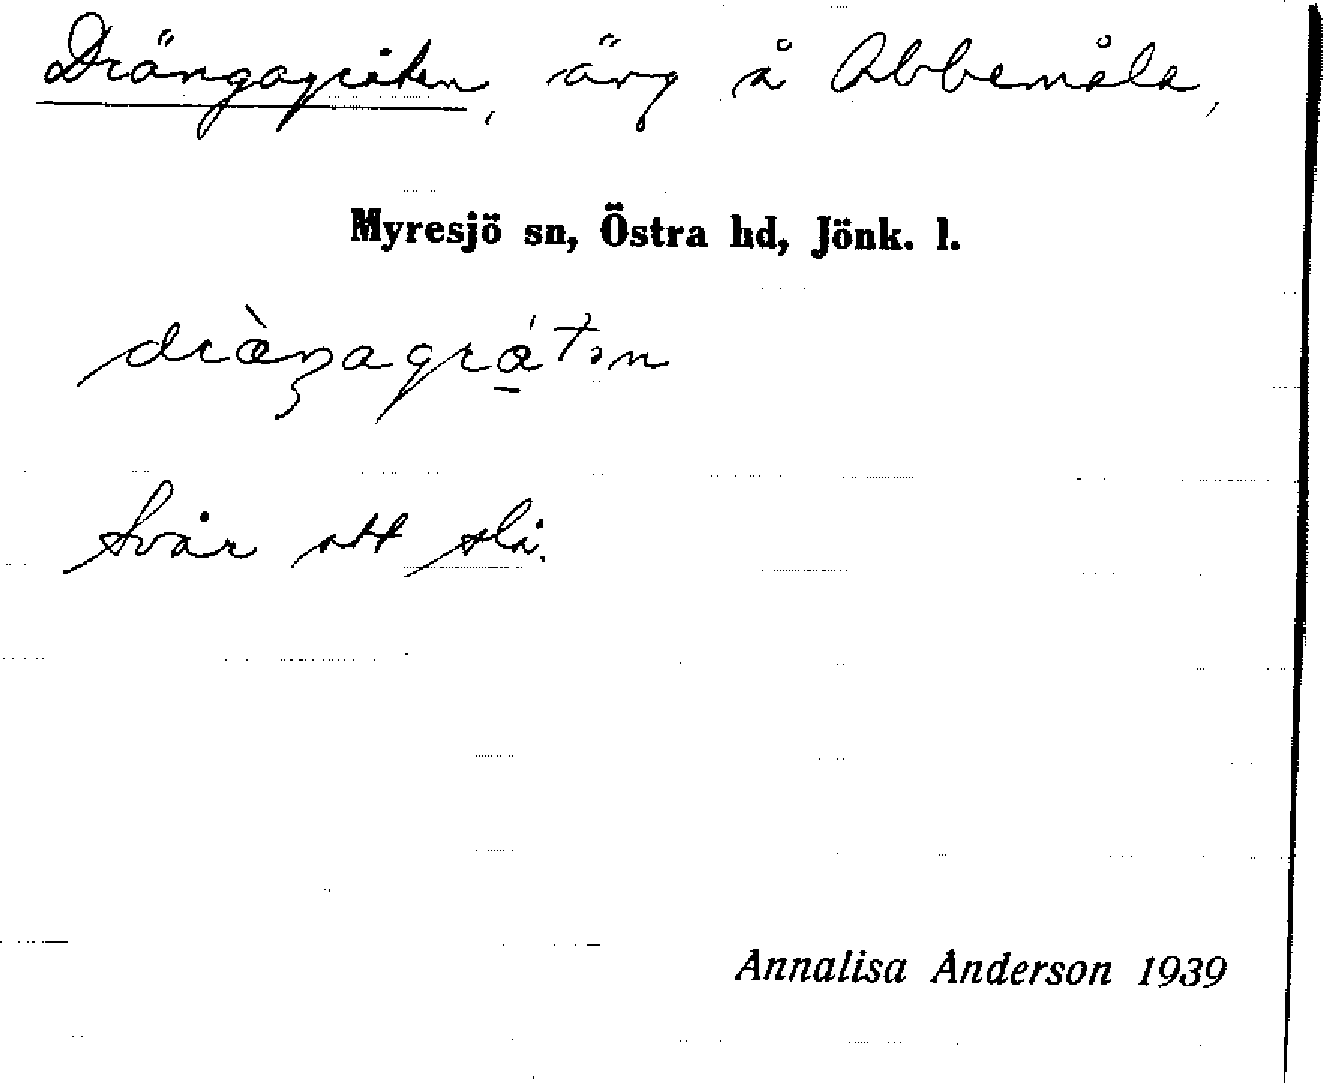 Drängagråten, äng å Abbemåla,
Myresjö sn, Östra hd, Jönk. l.
dræ̀ŋagrá̱tən
Svår att slå.
Annalisa Anderson 1939